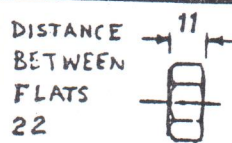 DISTANCE
BETWEEN
FLATS
22
11